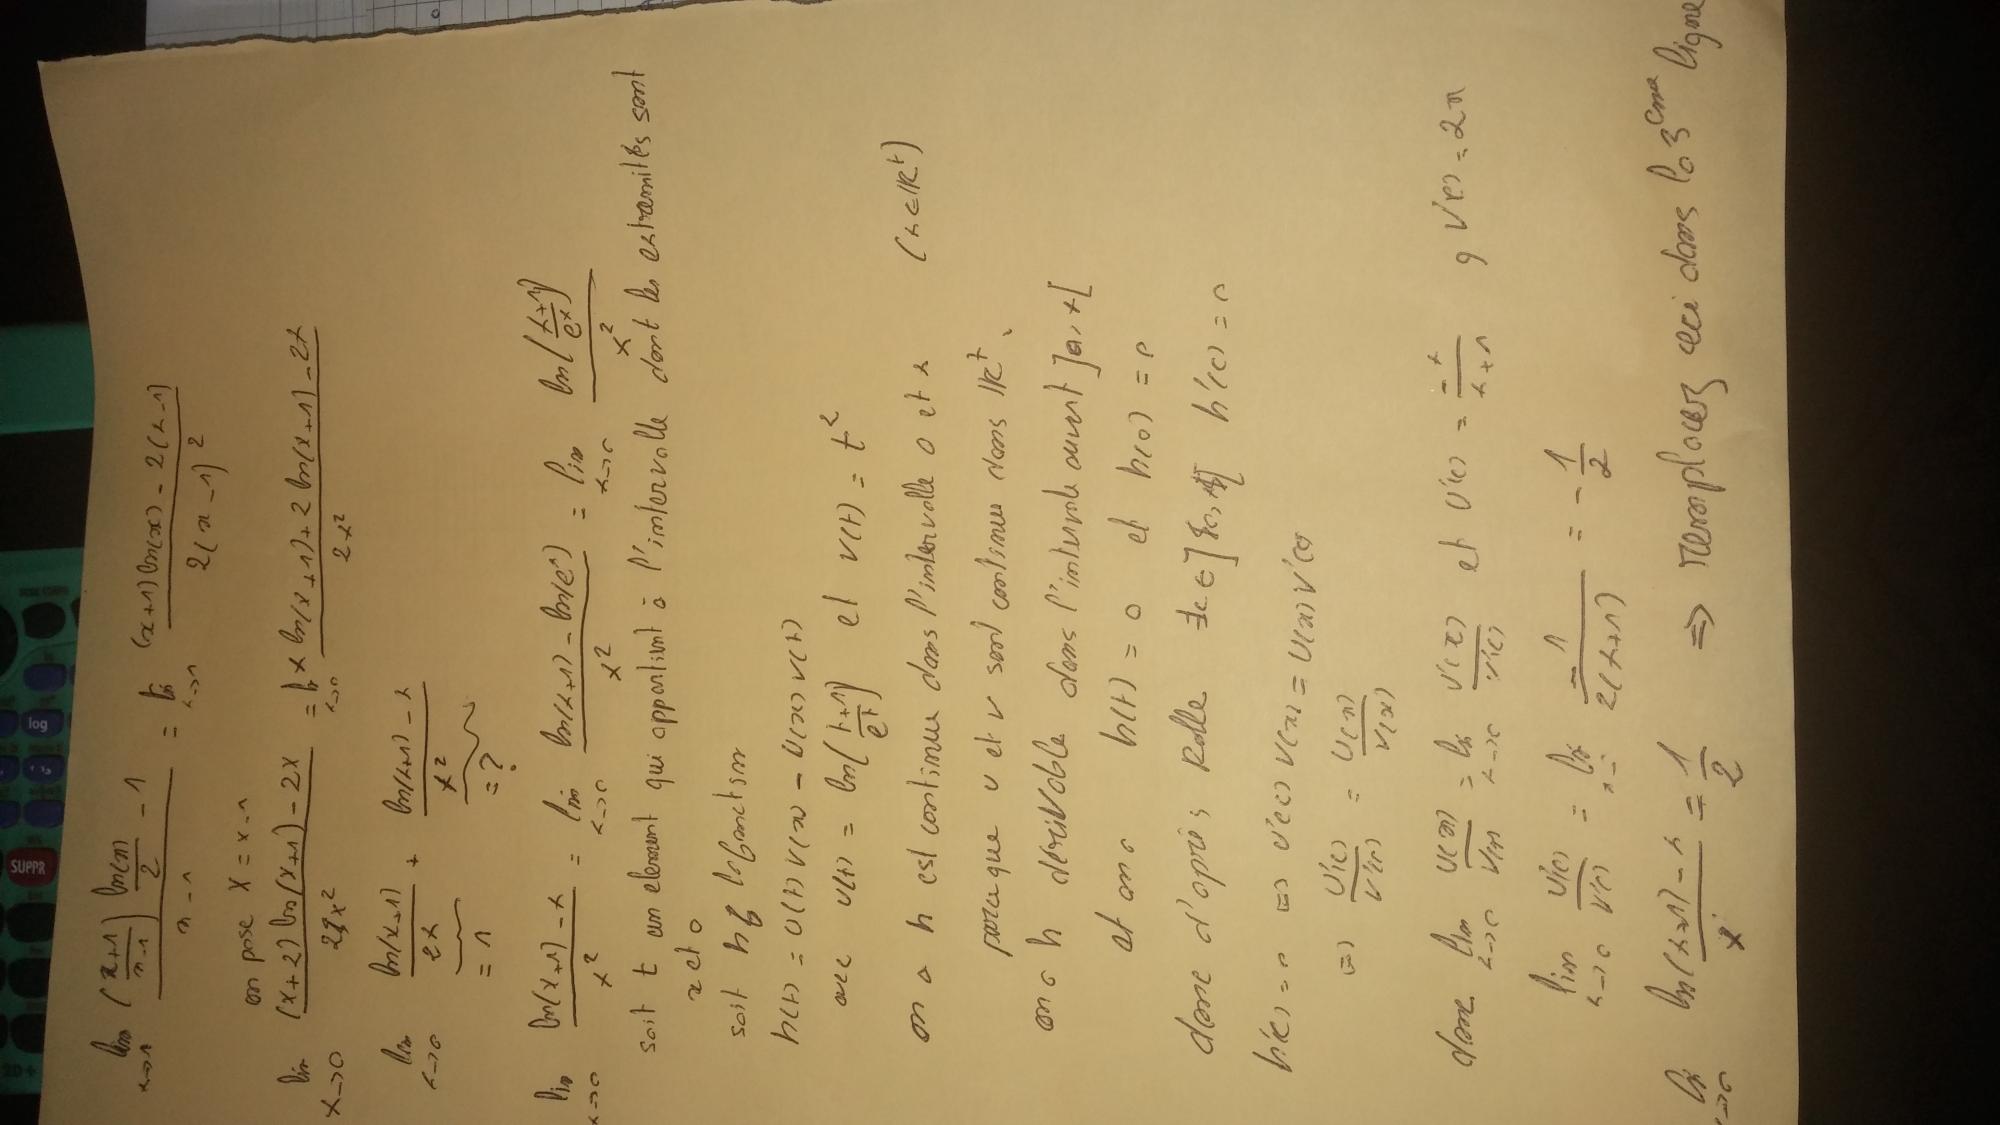 lim x→1 ((x+1)/(x-1)) ln(x)/2 - 1 / x-1 = li x→1 (x+1)ln(x) - 2(x-1) / 2(x-1)²
on pose X = x-1
lim x→0 (x+2)ln(x+1) - 2x / 2x² = li x→0 x ln(x+1) + 2ln(x+1) - 2x / 2x²
lim x→0 ln(x+1)/2x + ln(x+1)-x / x²
= 1 = ?
lim x→0 ln(x+1)-x / x² = lim x→0 ln(x+1) - ln(eˣ) / x² = lim x→0 ln((x+1)/eˣ) / x²
soit t un element qui appartient à l'intervalle dont les extramités sont
x et 0
soit h la fonction
h(t) = u(t)v(x) - u(x)v(t)
avec u(t) = ln((t+1)/eᵗ) et v(t) = t²
on a h est continue dans l'intervalle 0 et x (x∈IR⁺)
parceque u et v sont continus dans IR⁺,
on a h dérivable dans l'intervale ouvert ]0,x[
et on a h(t) = 0 et h(0) = 0
donc d'après Rolle ∃c∈]0,x[ h'(c) = 0
h'(c) = 0 ⇔ u'(c)v(x) = u(x)v'(c)
⇔ u'(c)/v'(c) = u(x)/v(x)
donc lim x→0 u(x)/v(x) = li x→0 u'(x)/v'(c) et u'(c) = -x/x+1 , v'(c) = 2x
lim x→0 u'(c)/v'(c) = li x→ -1/2(x+1) = -1/2
li x→0 ln(x+1)-x / x = -1/2 ⇒ remplacez ceci dans la 3ᵉᵐᵉ ligne